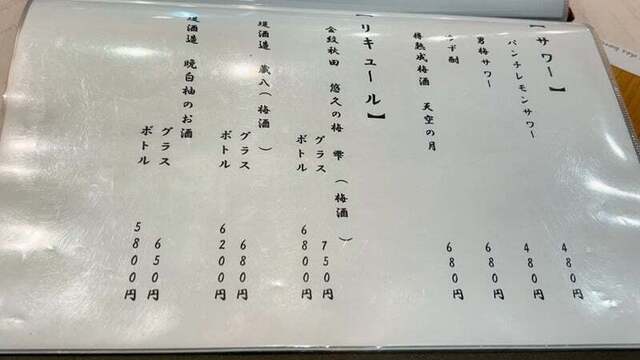 【サワー】
パンチレモンサワー 480円
男梅サワー 480円
ゆず酎 680円
樽熟成梅酒 天空の月 680円
【リキュール】
金紋秋田 悠久の梅 雫(梅酒)
グラス 750円
ボトル 6800円
堤酒造 蔵八(梅酒)
グラス 680円
ボトル 6200円
堤酒造 晩白柚のお酒
グラス 650円
ボトル 5800円